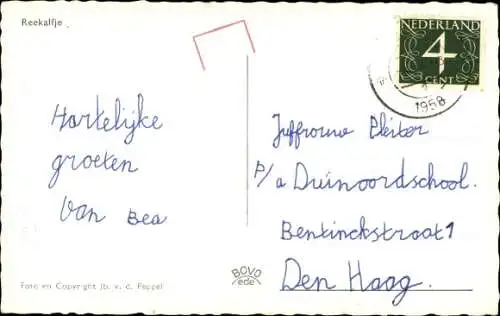 Reekalfje
NEDERLAND
4
CENT
1958
Hartelijke
groeten
Van Bea
Juffrouw Pleiter
p/a Duinoordschool.
Bentinckstraat 1
Den Haag.
BOVO
ede
Foto en Copyright Jb. v. d. Peppel